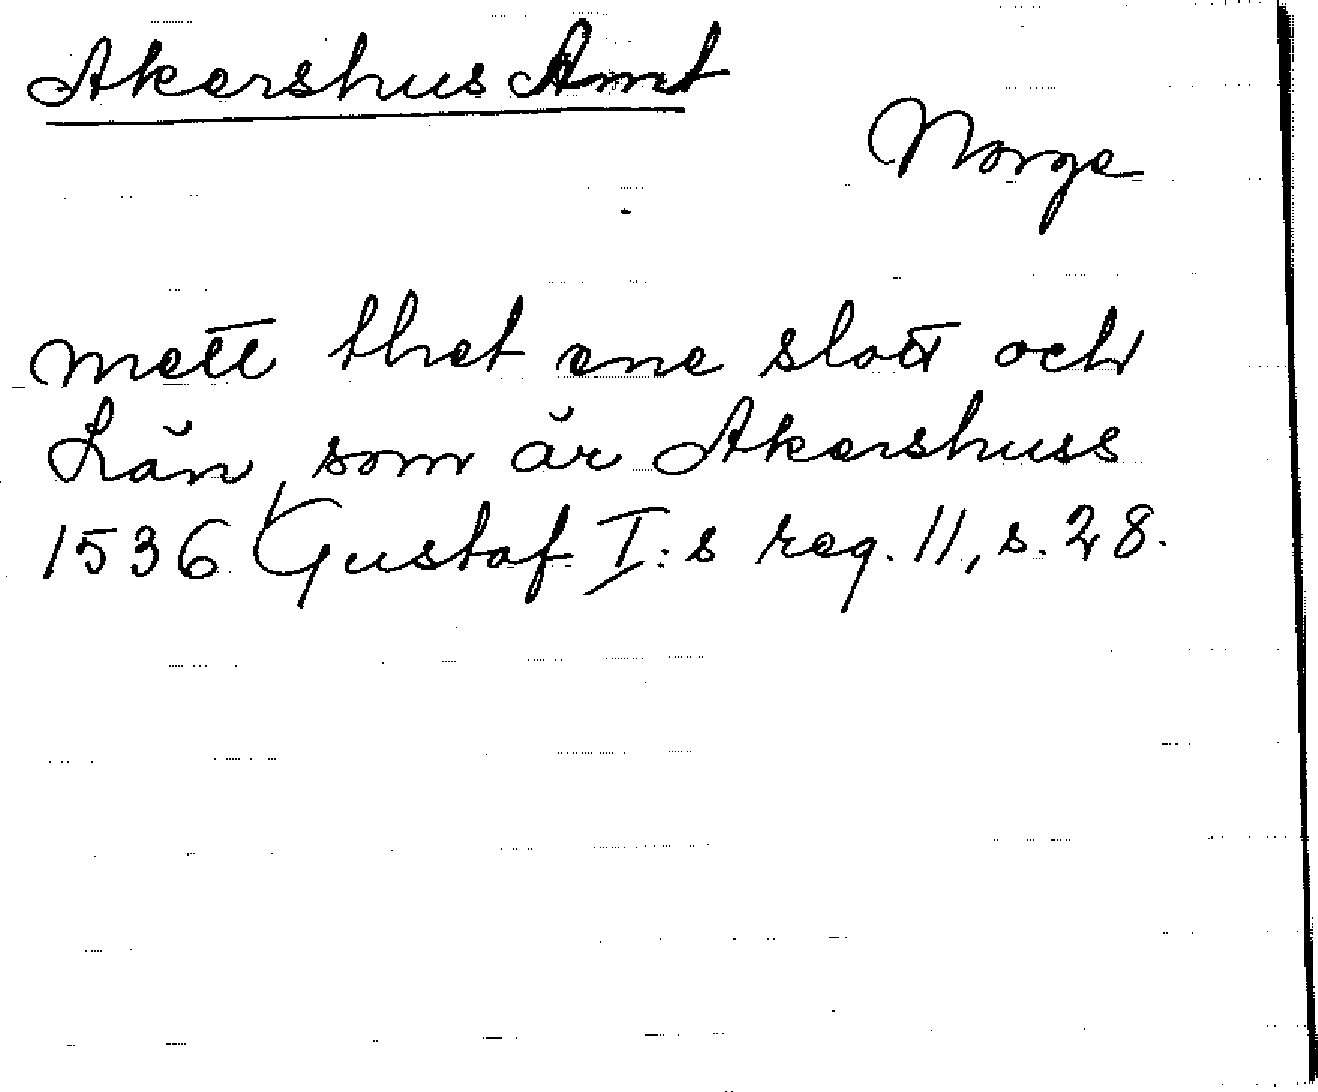 Akershus Amt
Norge
mett thet ene slott och
Län, som är Akershuss
1536 Gustaf I:s reg. 11, s. 28.